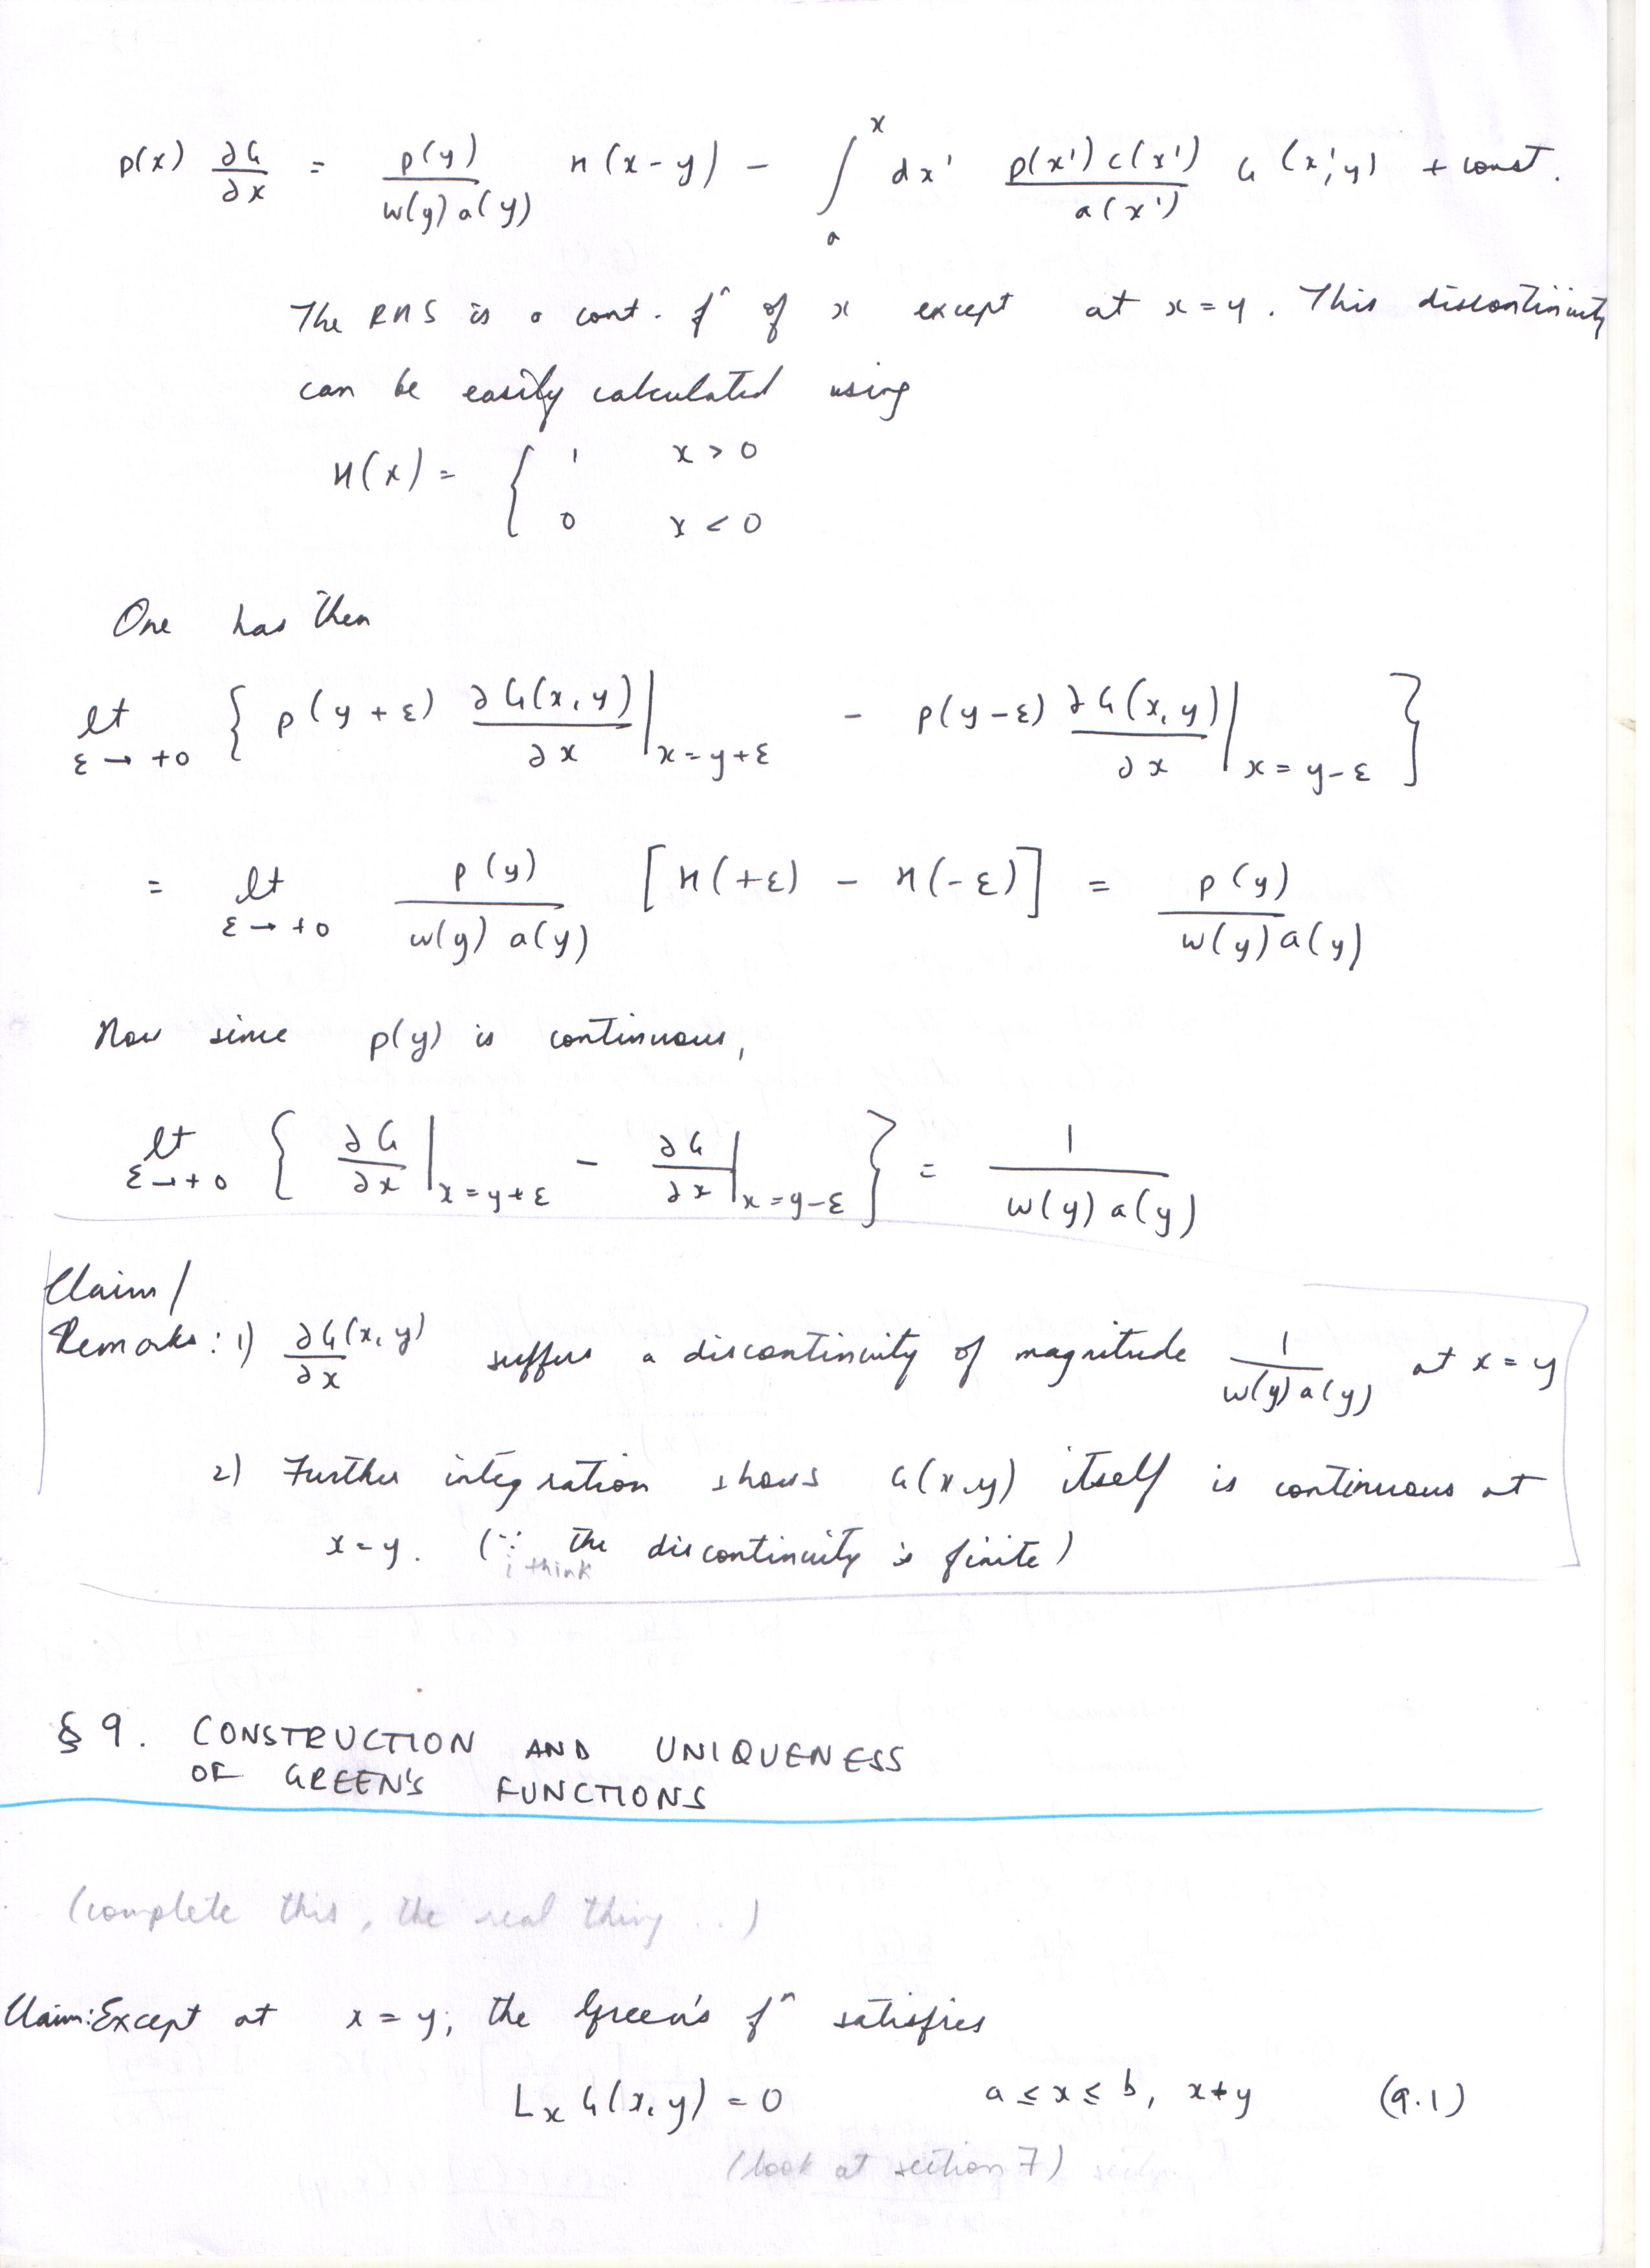 p(x) ∂G/∂x = p(y)/(w(y) a(y)) H(x-y) - ∫_a^x dx' p(x') c(x')/a(x') G(x', y) + const.
The RHS is a cont. fⁿ of x except at x=y. This discontinuity
can be easily calculated using
H(x) = { 1 x > 0
0 x < 0
One has then
lt_{ε → +0} { p(y+ε) ∂G(x,y)/∂x |_{x=y+ε} - p(y-ε) ∂G(x,y)/∂x |_{x=y-ε} }
= lt_{ε → +0} p(y)/(w(y) a(y)) [H(+ε) - H(-ε)] = p(y)/(w(y) a(y))
Now since p(y) is continuous,
lt_{ε → +0} { ∂G/∂x |_{x=y+ε} - ∂G/∂x |_{x=y-ε} } = 1/(w(y) a(y))
Claim/
Remarks: 1) ∂G(x,y)/∂x suffers a discontinuity of magnitude 1/(w(y) a(y)) at x=y
2) Further integration shows G(x,y) itself is continuous at
x=y. (∵ the discontinuity is finite)
i think
§ 9. CONSTRUCTION AND UNIQUENESS
OF GREEN'S FUNCTIONS
(complete this, the real thing...)
Claim: Except at x=y, the Green's fⁿ satisfies
L_x G(x,y) = 0 a ≤ x ≤ b, x≠y (9.1)
(look at section 7)